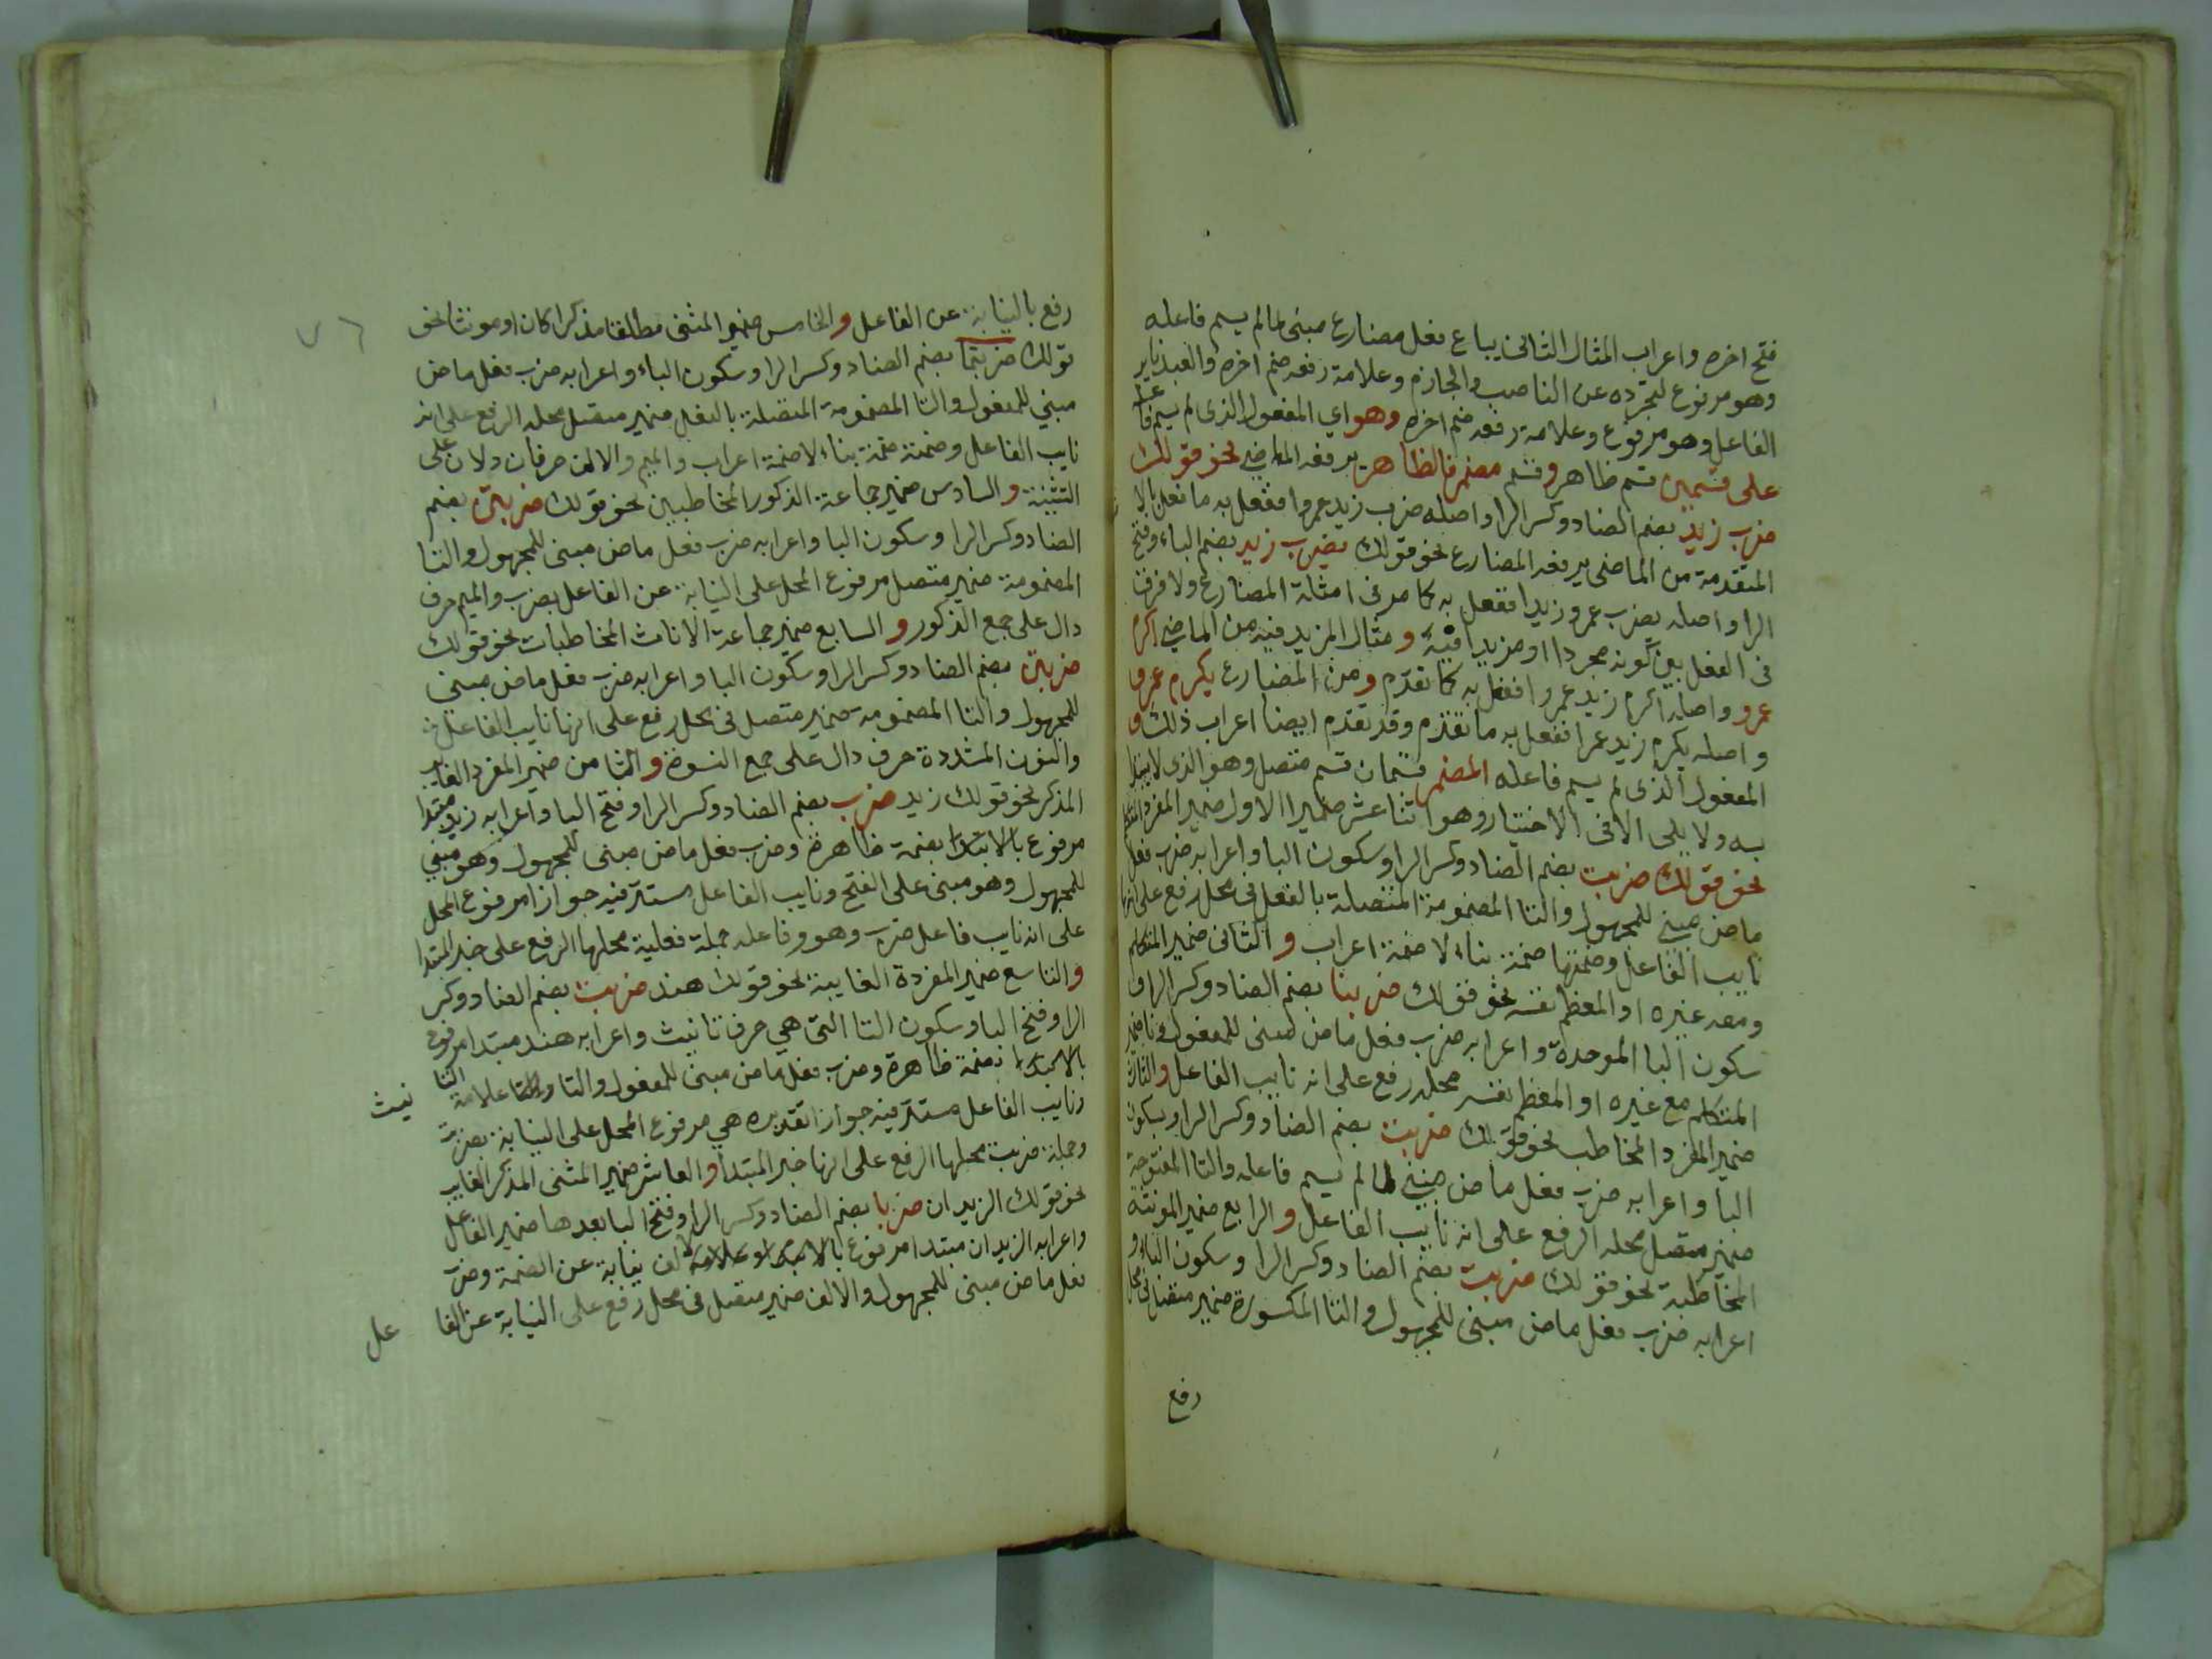 فتح اخره واعراب المثال الثانى يباع فعل مضارع مبنى لما لم يسم فاعله
وهو مرفوع لتجرده عن الناصب والجازم وعلامة رفعه ضم اخره والعبد نايب عن
الفاعل وهو مرفوع وعلامة رفعه ضم اخره وهو اي المفعول الذى لم يسم فا
على قسمين قسم ظاهر وقسم مضمر فالظاهر يرفعه الماضي نحو قولك
ضرب زيد بضم الضاد وكسر الرا واصله ضرب زيد عمروا ففعل به ما فعل بالا
المتقدمة من الماضى يرفعه المضارع نحو قولك يضرب زيد بضم الياء وفتح
الرا واصله يضرب عمرو زيدا ففعل به كما مر فى امثلة المضارع ولا فرق
فى الفعل بين كونه مجردا او مزيدا فيه ومثال المزيد فيه من الماضي اكرم
عمرو واصله اكرم زيد عمروا ففعل به كما تقدم ومن المضارع يكرم عمرو
واصله يكرم زيد عمرا ففعل به ما تقدم وقد تقدم ايضا اعراب ذلك و
المفعول الذى لم يسم فاعله المضمر قسمان قسم متصل وهو الذى لا يبتدا
به ولا يلى الا فى الاختيار وهو اثنا عشر ضميرا الاول ضمير المفرد المتكلم
نحو قولك ضربت بضم الضاد وكسر الرا وسكون البا واعرابه ضرب فعل
ماض مبني للمجهول والتا المضمومة المتصلة بالفعل فى محل رفع على انها
نايب الفاعل وضمتها ضمة بناء لا ضمة اعراب والثانى ضمير المتكلم
ومعه غيره او المعظم نفسه نحو قولك ضربنا بضم الضاد وكسر الرا و
سكون البا الموحدة واعرابه ضرب فعل ماض مبنى للمفعول ونا ضمير
المتكلم مع غيره او المعظم نفسه محله رفع على انه نايب الفاعل والثالث
ضمير المفرد المخاطب نحو قولك ضربت بضم الضاد وكسر الرا وسكون
البا واعرابه ضرب فعل ماض مبني لما لم يسم فاعله والتا المفتوحة
ضمير متصل محله الرفع على انه نايب الفاعل والرابع ضمير المونثة
المخاطبة نحو قولك ضربت بضم الضاد وكسر الرا وسكون الباء و
اعرابه ضرب فعل ماض مبنى للمجهول والتا المكسورة ضمير متصل فى محل
رفع
رفع بالنيابة عن الفاعل والخامس ضمير المثنى مطلقا مذكرا كان او مونثا نحو
قولك ضربتما بضم الضاد وكسر الرا وسكون الباء واعرابه ضرب فعل ماض
مبني للمفعول والتا المضمومة المتصلة بالفعل ضمير متصل محله الرفع على انه
نايب الفاعل وضمته ضمة بناء لا ضمة اعراب والميم والالف حرفان دلان على
التثنية والسادس ضمير جماعة الذكور المخاطبين نحو قولك ضربتم بضم
الضاد وكسر الرا وسكون البا واعرابه ضرب فعل ماض مبنى للمجهول والتا
المضمومة ضمير متصل مرفوع المحل على النيابة عن الفاعل بضرب والميم حرف
دال على جمع الذكور والسابع ضمير جماعة الاناث المخاطبات نحو قولك
ضربتن بضم الضاد وكسر الرا وسكون البا واعرابه ضرب فعل ماض مبني
للمجهول والتا المضمومة ضمير متصل فى محل رفع على انها نايب الفاعل
والنون المشددة حرف دال على جمع النسوة والثامن ضمير المفرد الغايب
المذكر نحو قولك زيد ضرب بضم الضاد وكسر الرا وفتح البا واعرابه زيد مبتدا
مرفوع بالابتدا بضمة ظاهرة وضرب فعل ماض مبنى للمجهول وهو مبني
للمجهول وهو مبنى على الفتح ونايب الفاعل مستتر فيه جوازا مرفوع المحل
على انه نايب فاعل ضرب وهو وفاعله جملة فعلية محلها الرفع على خبر المبتدا
والتاسع ضمير المفردة الغايبة نحو قولك هند ضربت بضم الضاد وكسر
الرا وفتح البا وسكون التا التى هي حرف تانيث واعرابه هند مبتدا مرفوع
بالابتدا بضمة ظاهرة وضرب فعل ماض مبنى للمفعول والتا علامة التا
نيث
ونايب الفاعل مستتر فيه جوازا تقديره هي مرفوع المحل على النيابة بضربت
وجملة ضربت محلها الرفع على انها خبر المبتدا والعاشر ضمير المثنى المذكر الغايب
نحو قولك الزيدان ضربا بضم الضاد وكسر الرا وفتح البا بعدها ضمير الفاعل
واعرابه الزيدان مبتدا مرفوع بالابتدا وعلامة الالف نيابة عن الضمة وضرب
فعل ماض مبنى للمجهول والالف ضمير متصل فى محل رفع على النيابة عن الفا
عل